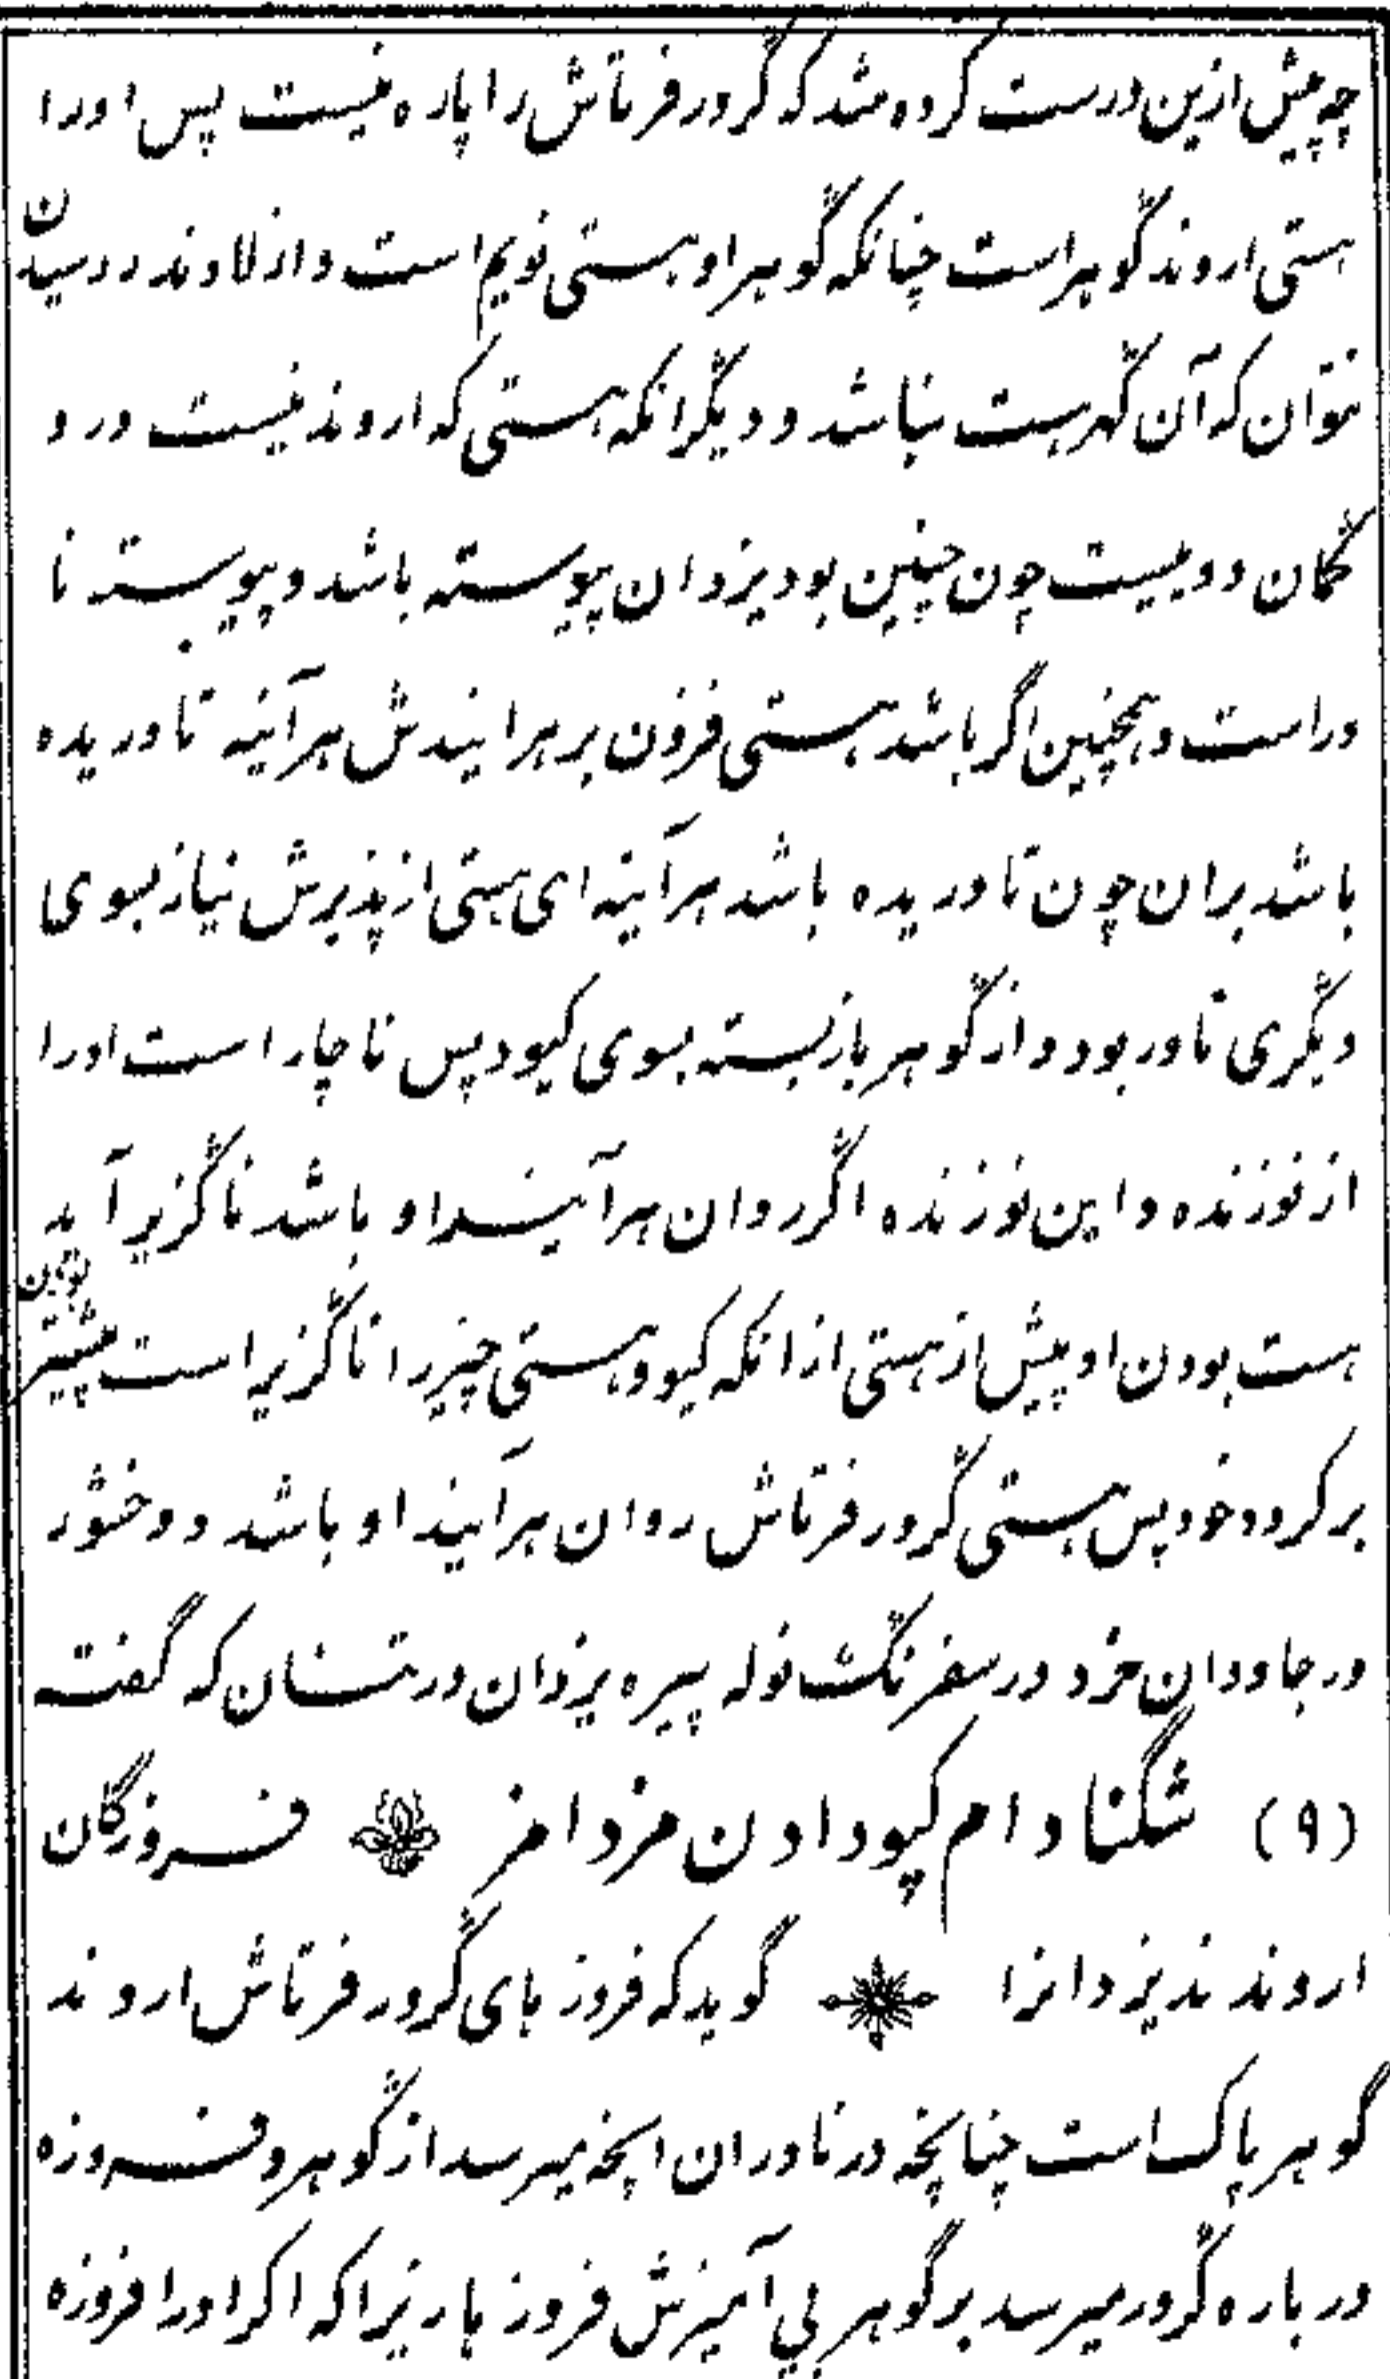 چه پیش ازین درست کرده شد که گرور فرتاش را پاره نیست پس اورا
هستی اروند گوهر است چنانکه گوهر او هستی نویم است و از لاوند دررسیدن
نتوان که آن گهر هست نباشد و دیگر انکه هستی که اروند نیست درو
گمان دوییست چون چنین بود یزدان پیوسته باشد و پیوسته نا
وراست و همچنین اگر باشد هستی فزون بر هرایندش هرآینه تاوریده
باشد بران چون تاوریده باشد هرآینه ای هستی از پذیرش نیاز بسوی
دیگری تاور بود و از گوهر بازبسته بسوی کیود پس ناچار است اورا
از نوزنده و این نوزنده اگر روان هرآینداو باشد ناگزیر آید
هست بودن او پیش از هستی از انکه کیود هستی چیز را ناگزیر است پیشتر بودن
بر کرود خود پس هستی گرور فرتاش روان هرآیند او باشد و وخشور
در جاودان خرد در سفرنگ نوله پیره یزدان در تسنان که گفته
(۹) شگنا دام کپود ادن مزدامز فروزگان
اروندند یزدانرا گوید که فروزهای گرور فرتاش اروند
گوهر پاک است چنانچه در ناوران انچه میرسد از گوهر و فروزه
در باره گرور میرسد بر گوهر بی آمیزش فروزها زیرا که اگر اورا فروزه